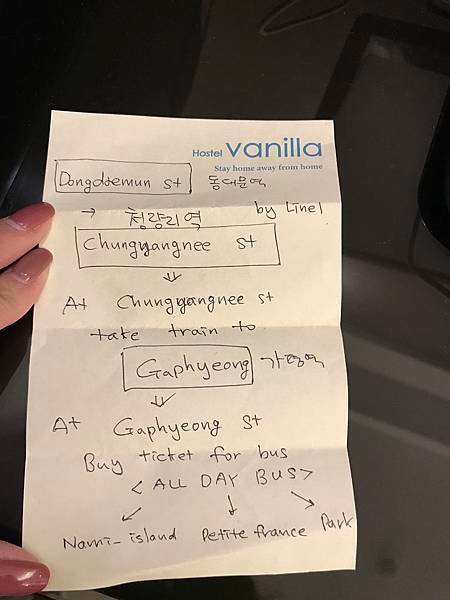 Hostel vanilla
Stay home away from home
Dongdaemun st 동대문역
→ 청량리역 by Line1
Chungyangnee st
⇓
At Chungyangnee st
take train to
Gaphyeong 가평역
⇓
At Gaphyeong st
Buy ticket for bus
< ALL DAY BUS>
↙ ↓ ↘
Nami_ island Petite france Park